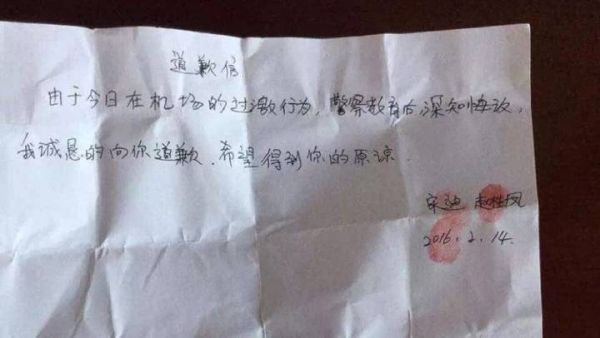 道歉信
由于今日在机场的过激行为，警察教育后深知悔改，
我诚恳的向你道歉．希望得到你的原谅．
宋迪 赵性凤
2016.2.14.